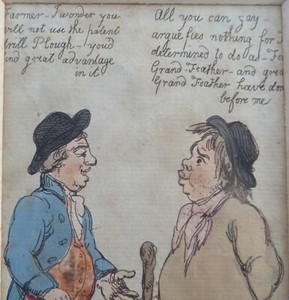 Farmer - I wonder you
will not use the patent
Drill Plough - you'd
find great advantage
in it
All you can say -
argue fies nothing for I
determined to do as - Fe
Grand - Feather - and grea
Grand Feather have don
before me